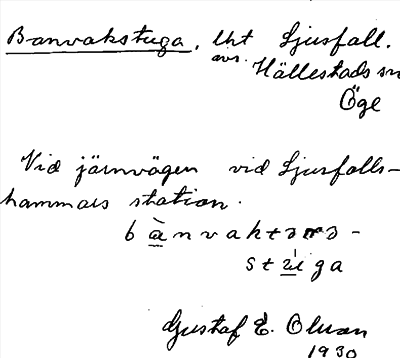 Banvakstuga, lht Ljusfall.
avs. Hällestads sn
Öge
Vid järnvägen vid Ljusfalls-
hammars station.
bànvaktərə-
stúga
Gustaf E. Olman
1930